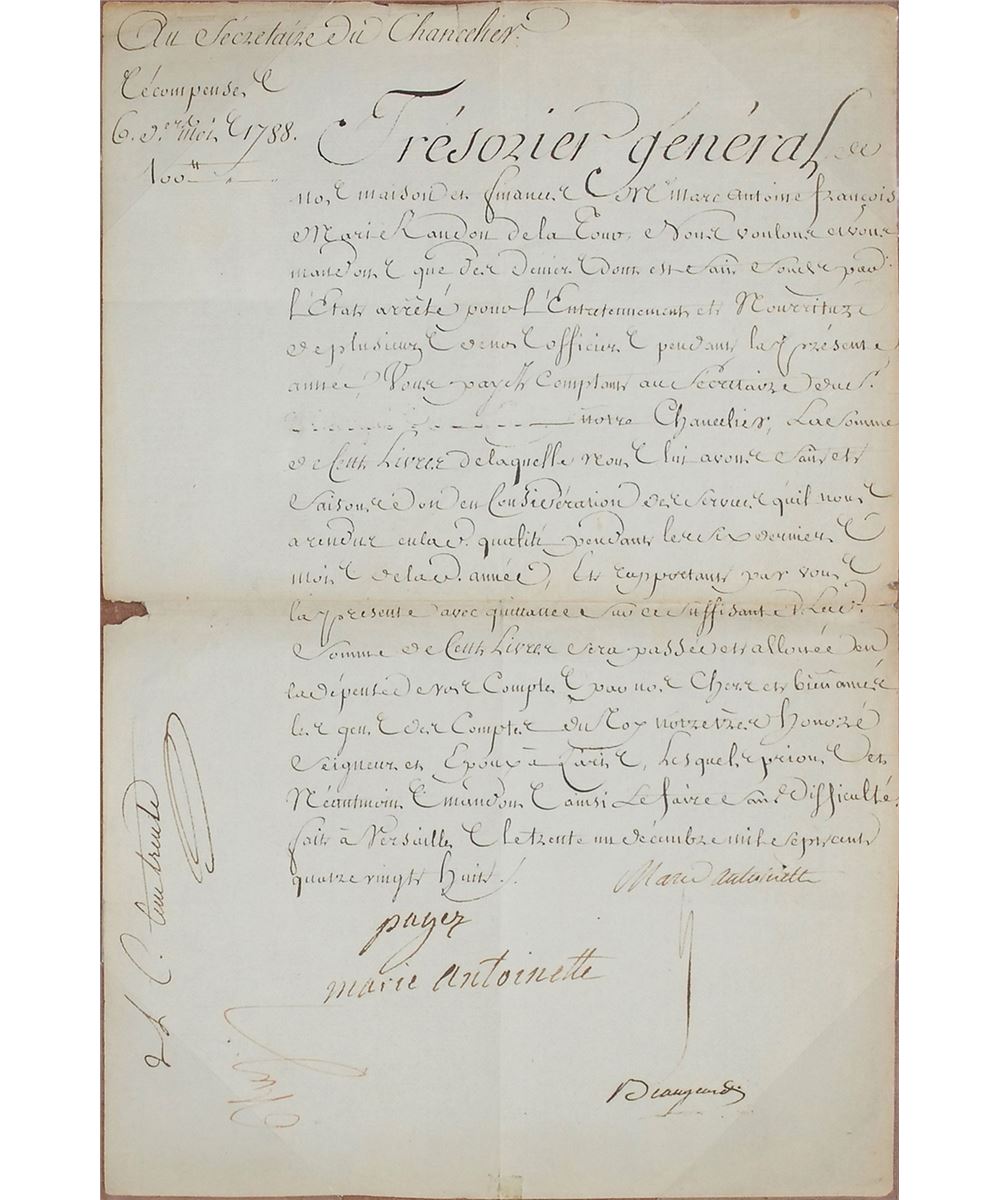 Au Sécretaire du Chancelier.
Récompenses
6. d.ers mois 1788.
100.tt
Trésorier général de
nos maison et finances M.e Marc Antoine françois
Marie Randon de la Tour. Nous voulons et vous
mandons que des deniers dont est fait fonds par
l'Etat arrêté pour l'Entretennement et Nourriture
de plusieurs de nos officiers pendant la présente
année, Vous payez Comptant au Sécretaire du S.r
notre Chancelier, La somme
de Cent Livres de laquelle Nous lui avons fait et
faisons don en Considération des services qu'il nous
a rendus en lad. qualité pendant les six derniers
mois de lad. année, Et rapportant par vous
la présente avec quittance sur ce suffisante, Lad.
Somme de Cent Livres sera passée et allouée en
la dépense de vos Comptes par nos Chers et bien amés
les gens des Comptes du Roy notre très Honoré
Seigneur et Epoux à Paris, Lesquels prions et
Néantmoins mandons ainsi Le faire sans difficulté,
fait à Versailles le trente un décembre mil sept cent
quatre vingt huit ./.
Marie Antoinette
payez
marie antoinette
Beaugeard
cent trente